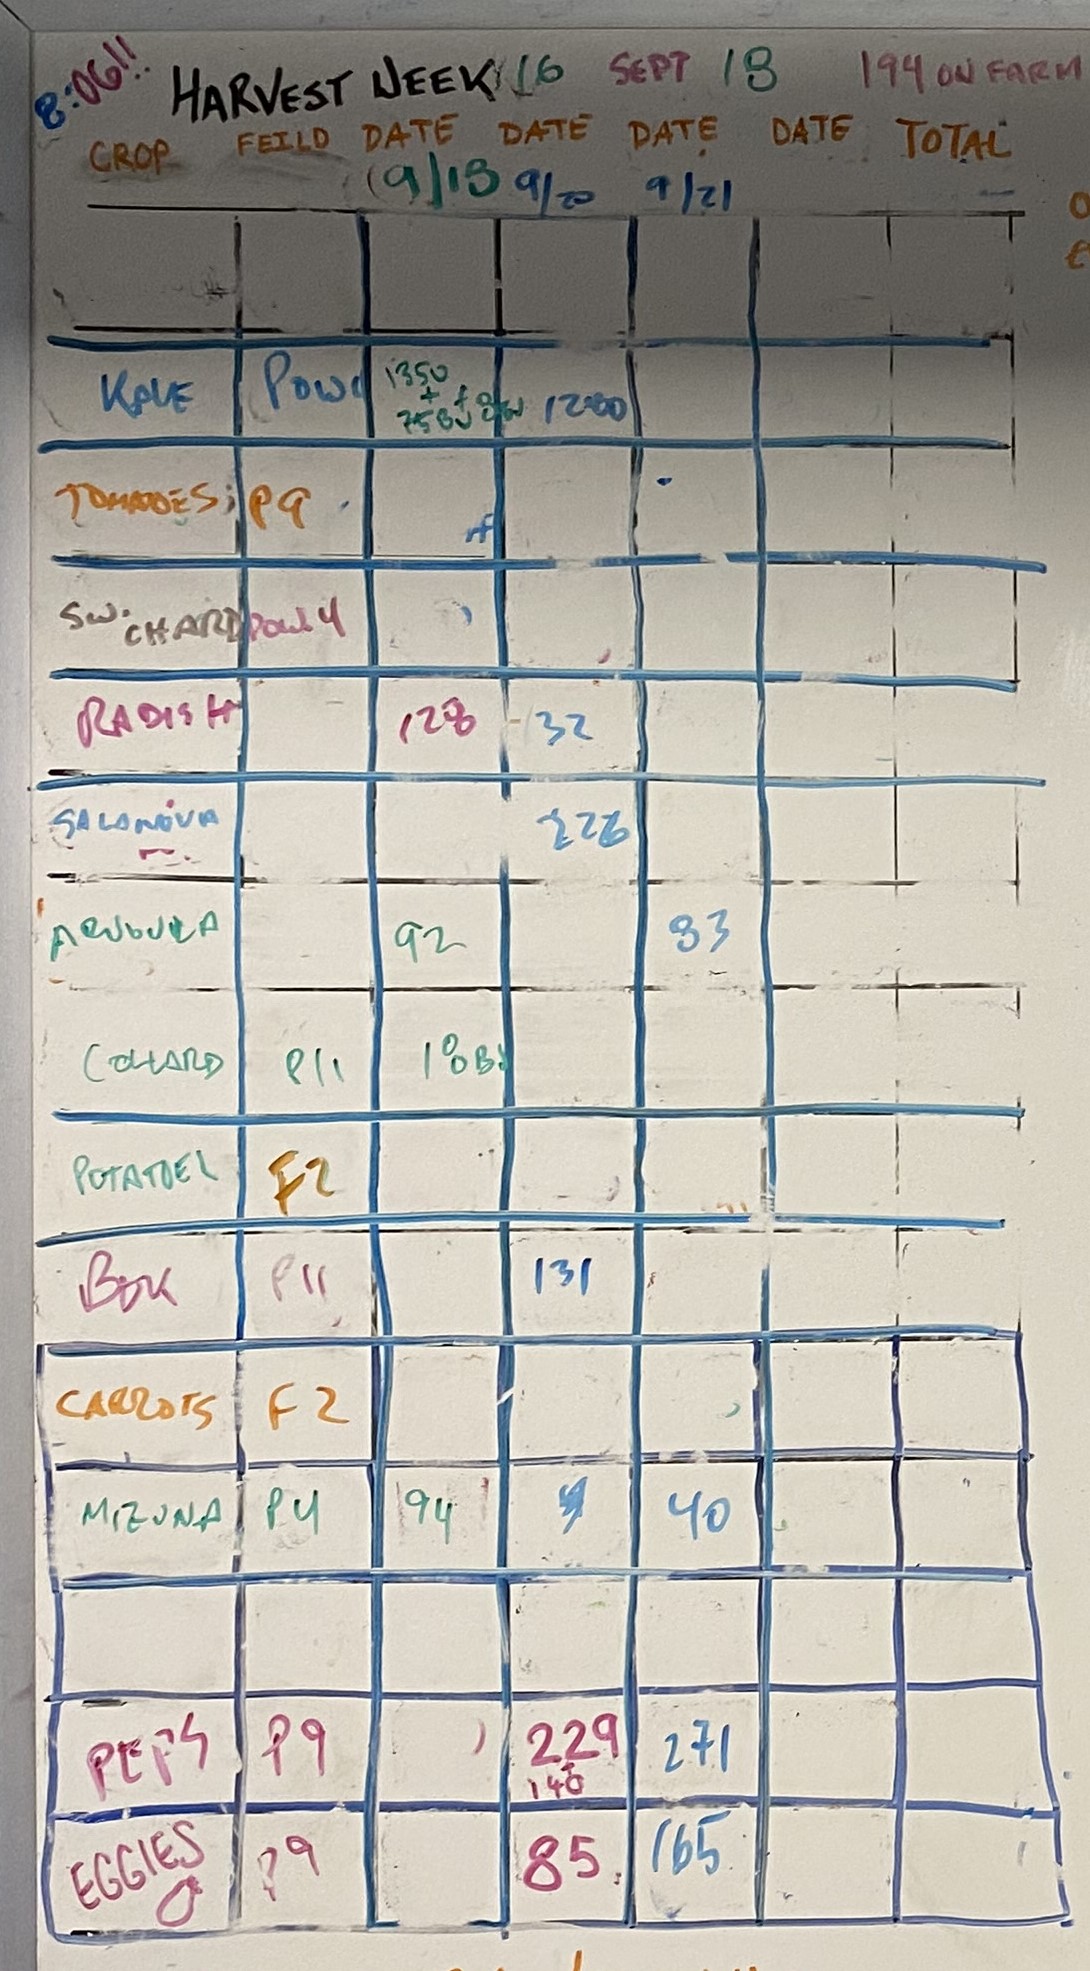 8:06!!
HARVEST WEEK 16 SEPT 18 194 ON FARM
CROP FEILD DATE DATE DATE DATE TOTAL
9/18 9/20 9/21
KALE POW 1350 + 75BU + 8BU 1200
TOMATOES; P9
SW. CHARD POW. 4
RADISH 128 32
SALANOVA 226
ARUGULA 92 83
COLLARD P11 18 BU
POTATOES F2
BOK P11 131
CARROTS F2
MIZUNA P4 94 40
PEPS P9 229 + 140 271
EGGIES P9 85 165